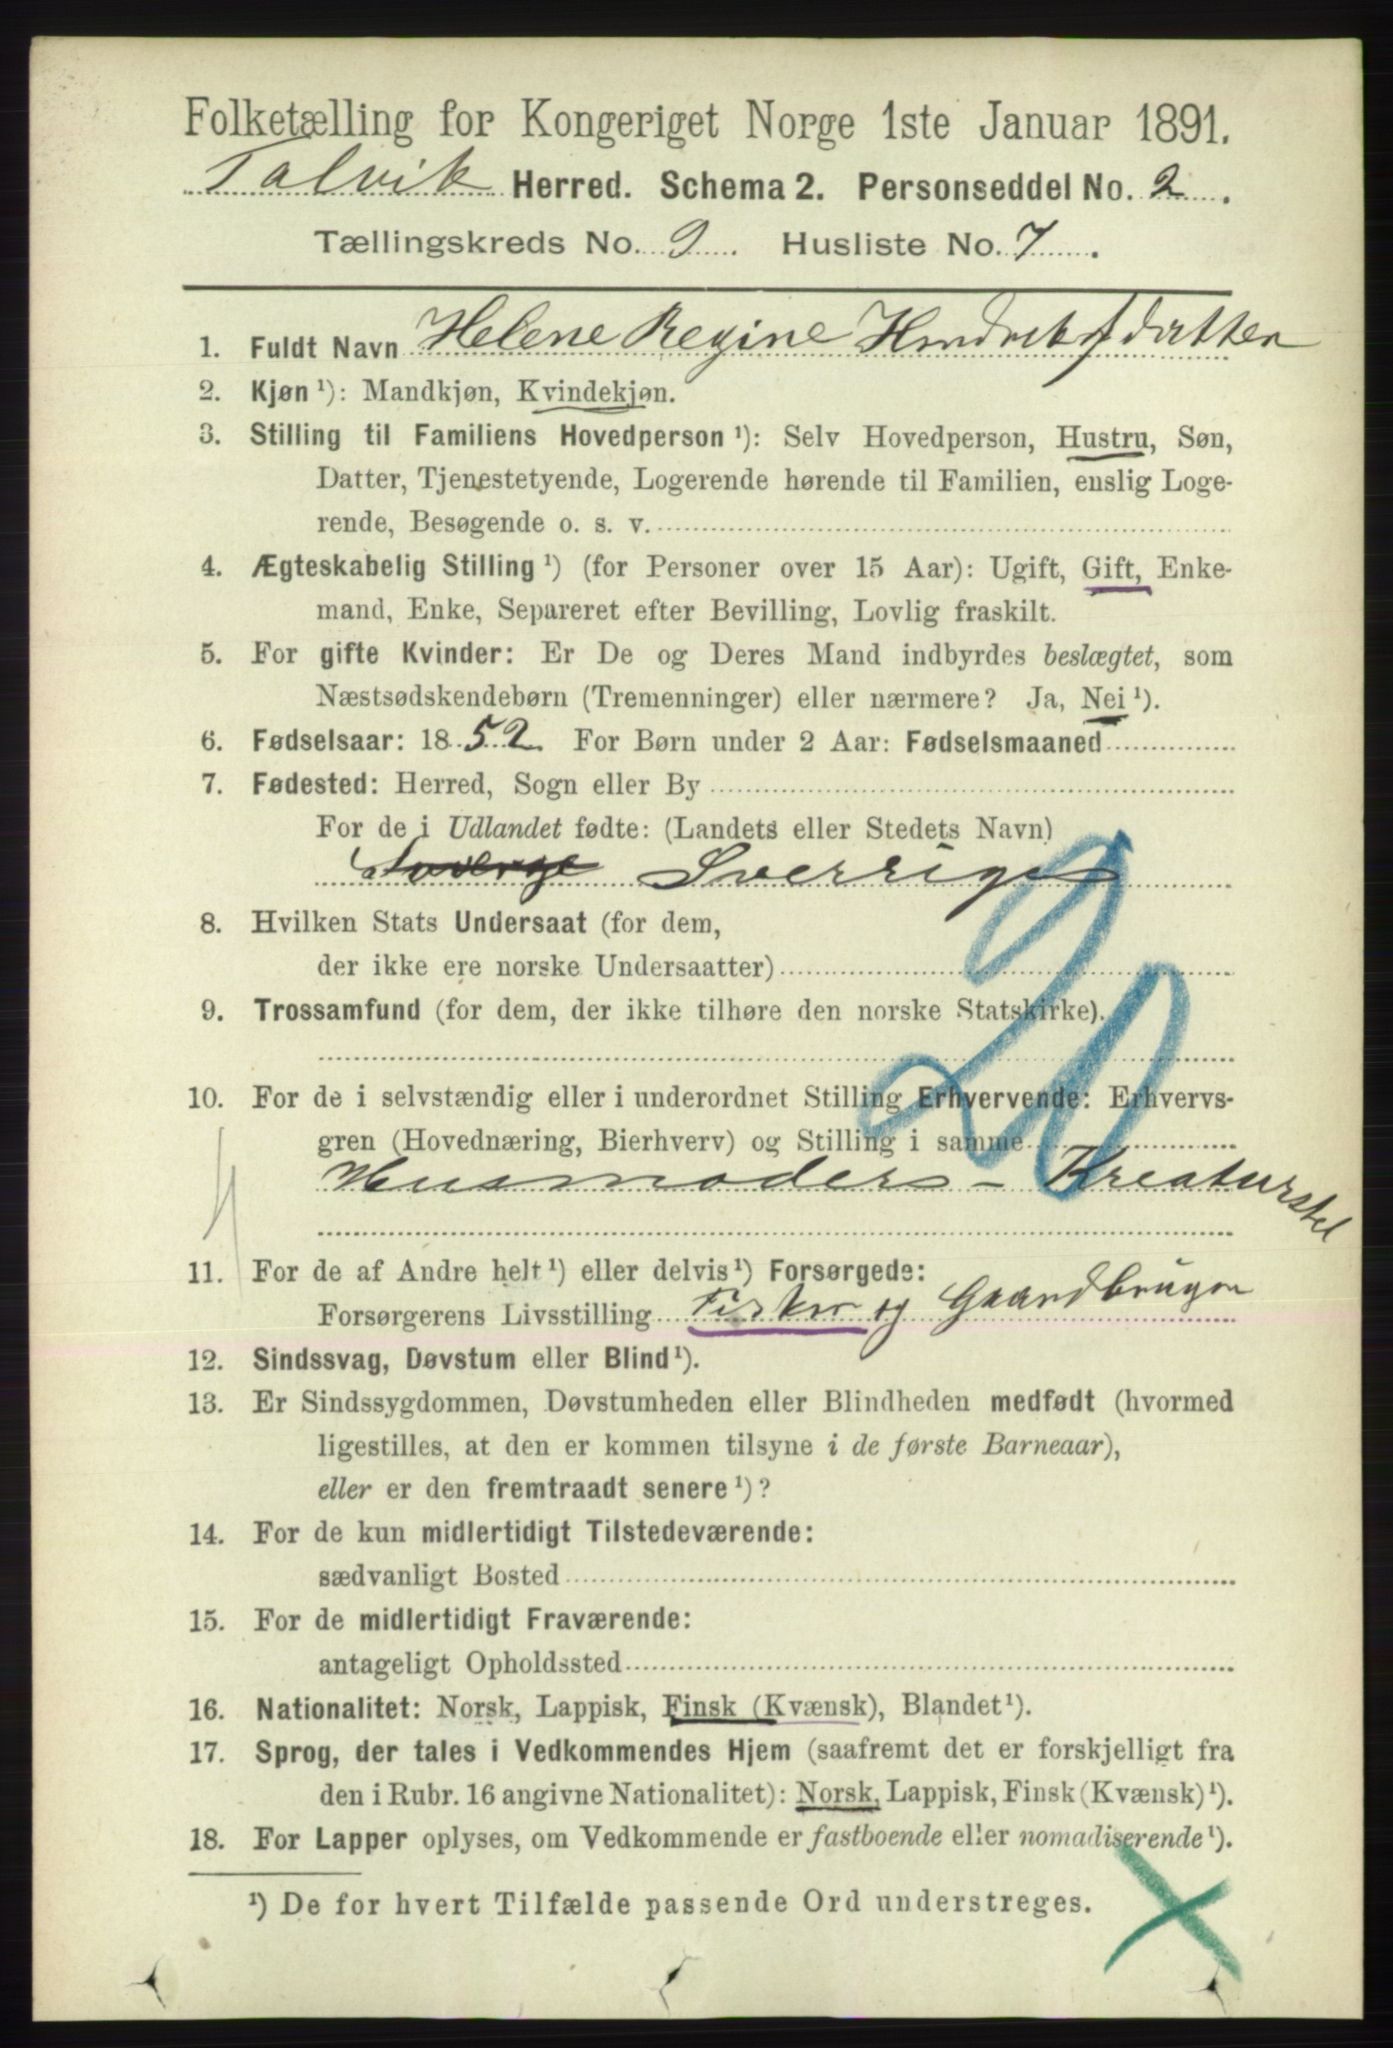 Folketælling for Kongeriget Norge 1ste Januar 1891.
Talvik Herred. Schema 2. Personseddel No. 2.
Tællingskreds No. 9. Husliste No. 7.
1. Fuldt Navn Helene Regine Hendriksdatter
2. Kjøn ¹): Mandkjøn, Kvindekjøn.
3. Stilling til Familiens Hovedperson ¹): Selv Hovedperson, Hustru, Søn,
Datter, Tjenestetyende, Logerende hørende til Familien, enslig Loge-
rende, Besøgende o. s. v.
4. Ægteskabelig Stilling ¹) (for Personer over 15 Aar): Ugift, Gift, Enke-
mand, Enke, Separeret efter Bevilling, Lovlig fraskilt.
5. For gifte Kvinder: Er De og Deres Mand indbyrdes beslægtet, som
Næstsødskendebørn (Tremenninger) eller nærmere? Ja, Nei ¹).
6. Fødselsaar: 1852 For Børn under 2 Aar: Fødselsmaaned
7. Fødested: Herred, Sogn eller By
For de i Udlandet fødte: (Landets eller Stedets Navn)
Sverrige
20
8. Hvilken Stats Undersaat (for dem,
der ikke ere norske Undersaatter)
9. Trossamfund (for dem, der ikke tilhøre den norske Statskirke).
10. For de i selvstændig eller i underordnet Stilling Erhvervende: Erhvervs-
gren (Hovednæring, Bierhverv) og Stilling i samme
Husmoders - Kreaturstel
11. For de af Andre helt ¹) eller delvis ¹) Forsørgede:
Forsørgerens Livsstilling Fisker og Gaardbruger
12. Sindssvag, Døvstum eller Blind ¹).
13. Er Sindssygdommen, Døvstumheden eller Blindheden medfødt (hvormed
ligestilles, at den er kommen tilsyne i de første Barneaar),
eller er den fremtraadt senere ¹)?
14. For de kun midlertidigt Tilstedeværende:
sædvanligt Bosted
15. For de midlertidigt Fraværende:
antageligt Opholdssted
16. Nationalitet: Norsk, Lappisk, Finsk (Kvænsk), Blandet ¹).
17. Sprog, der tales i Vedkommendes Hjem (saafremt det er forskjelligt fra
den i Rubr. 16 angivne Nationalitet): Norsk, Lappisk, Finsk (Kvænsk) ¹).
18. For Lapper oplyses, om Vedkommende er fastboende eller nomadiserende ¹).
¹) De for hvert Tilfælde passende Ord understreges.